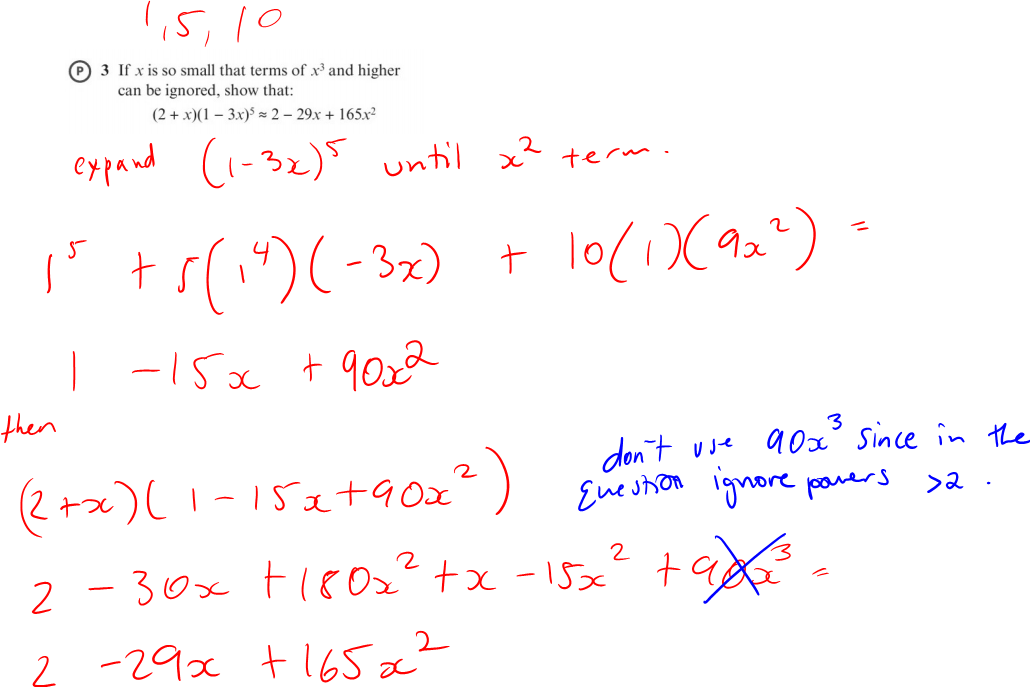 1, 5, 10
P 3 If x is so small that terms of x³ and higher
can be ignored, show that:
(2 + x)(1 – 3x)⁵ ≈ 2 – 29x + 165x²
expand (1-3x)⁵ until x² term.
1⁵ + 5(1⁴)(-3x) + 10(1)(9x²) =
1 -15x + 90x²
then
(2+x)(1-15x+90x²)
don't use 90x³ since in the
Question ignore powers >2.
2 -30x +180x² +x -15x² +90x³ =
2 -29x +165x²